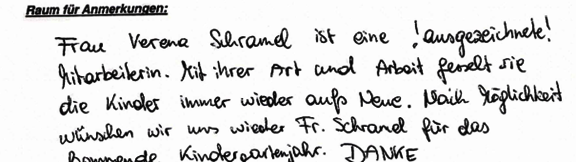 Raum für Anmerkungen:
Frau Verena Schramel ist eine !ausgezeichnete!
Mitarbeiterin. Mit ihrer Art und Arbeit fesselt sie
die Kinder immer wieder aufs Neue. Nach Möglichkeit
wünschen wir uns wieder Fr. Schramel für das
kommende Kindergartenjahr. DANKE